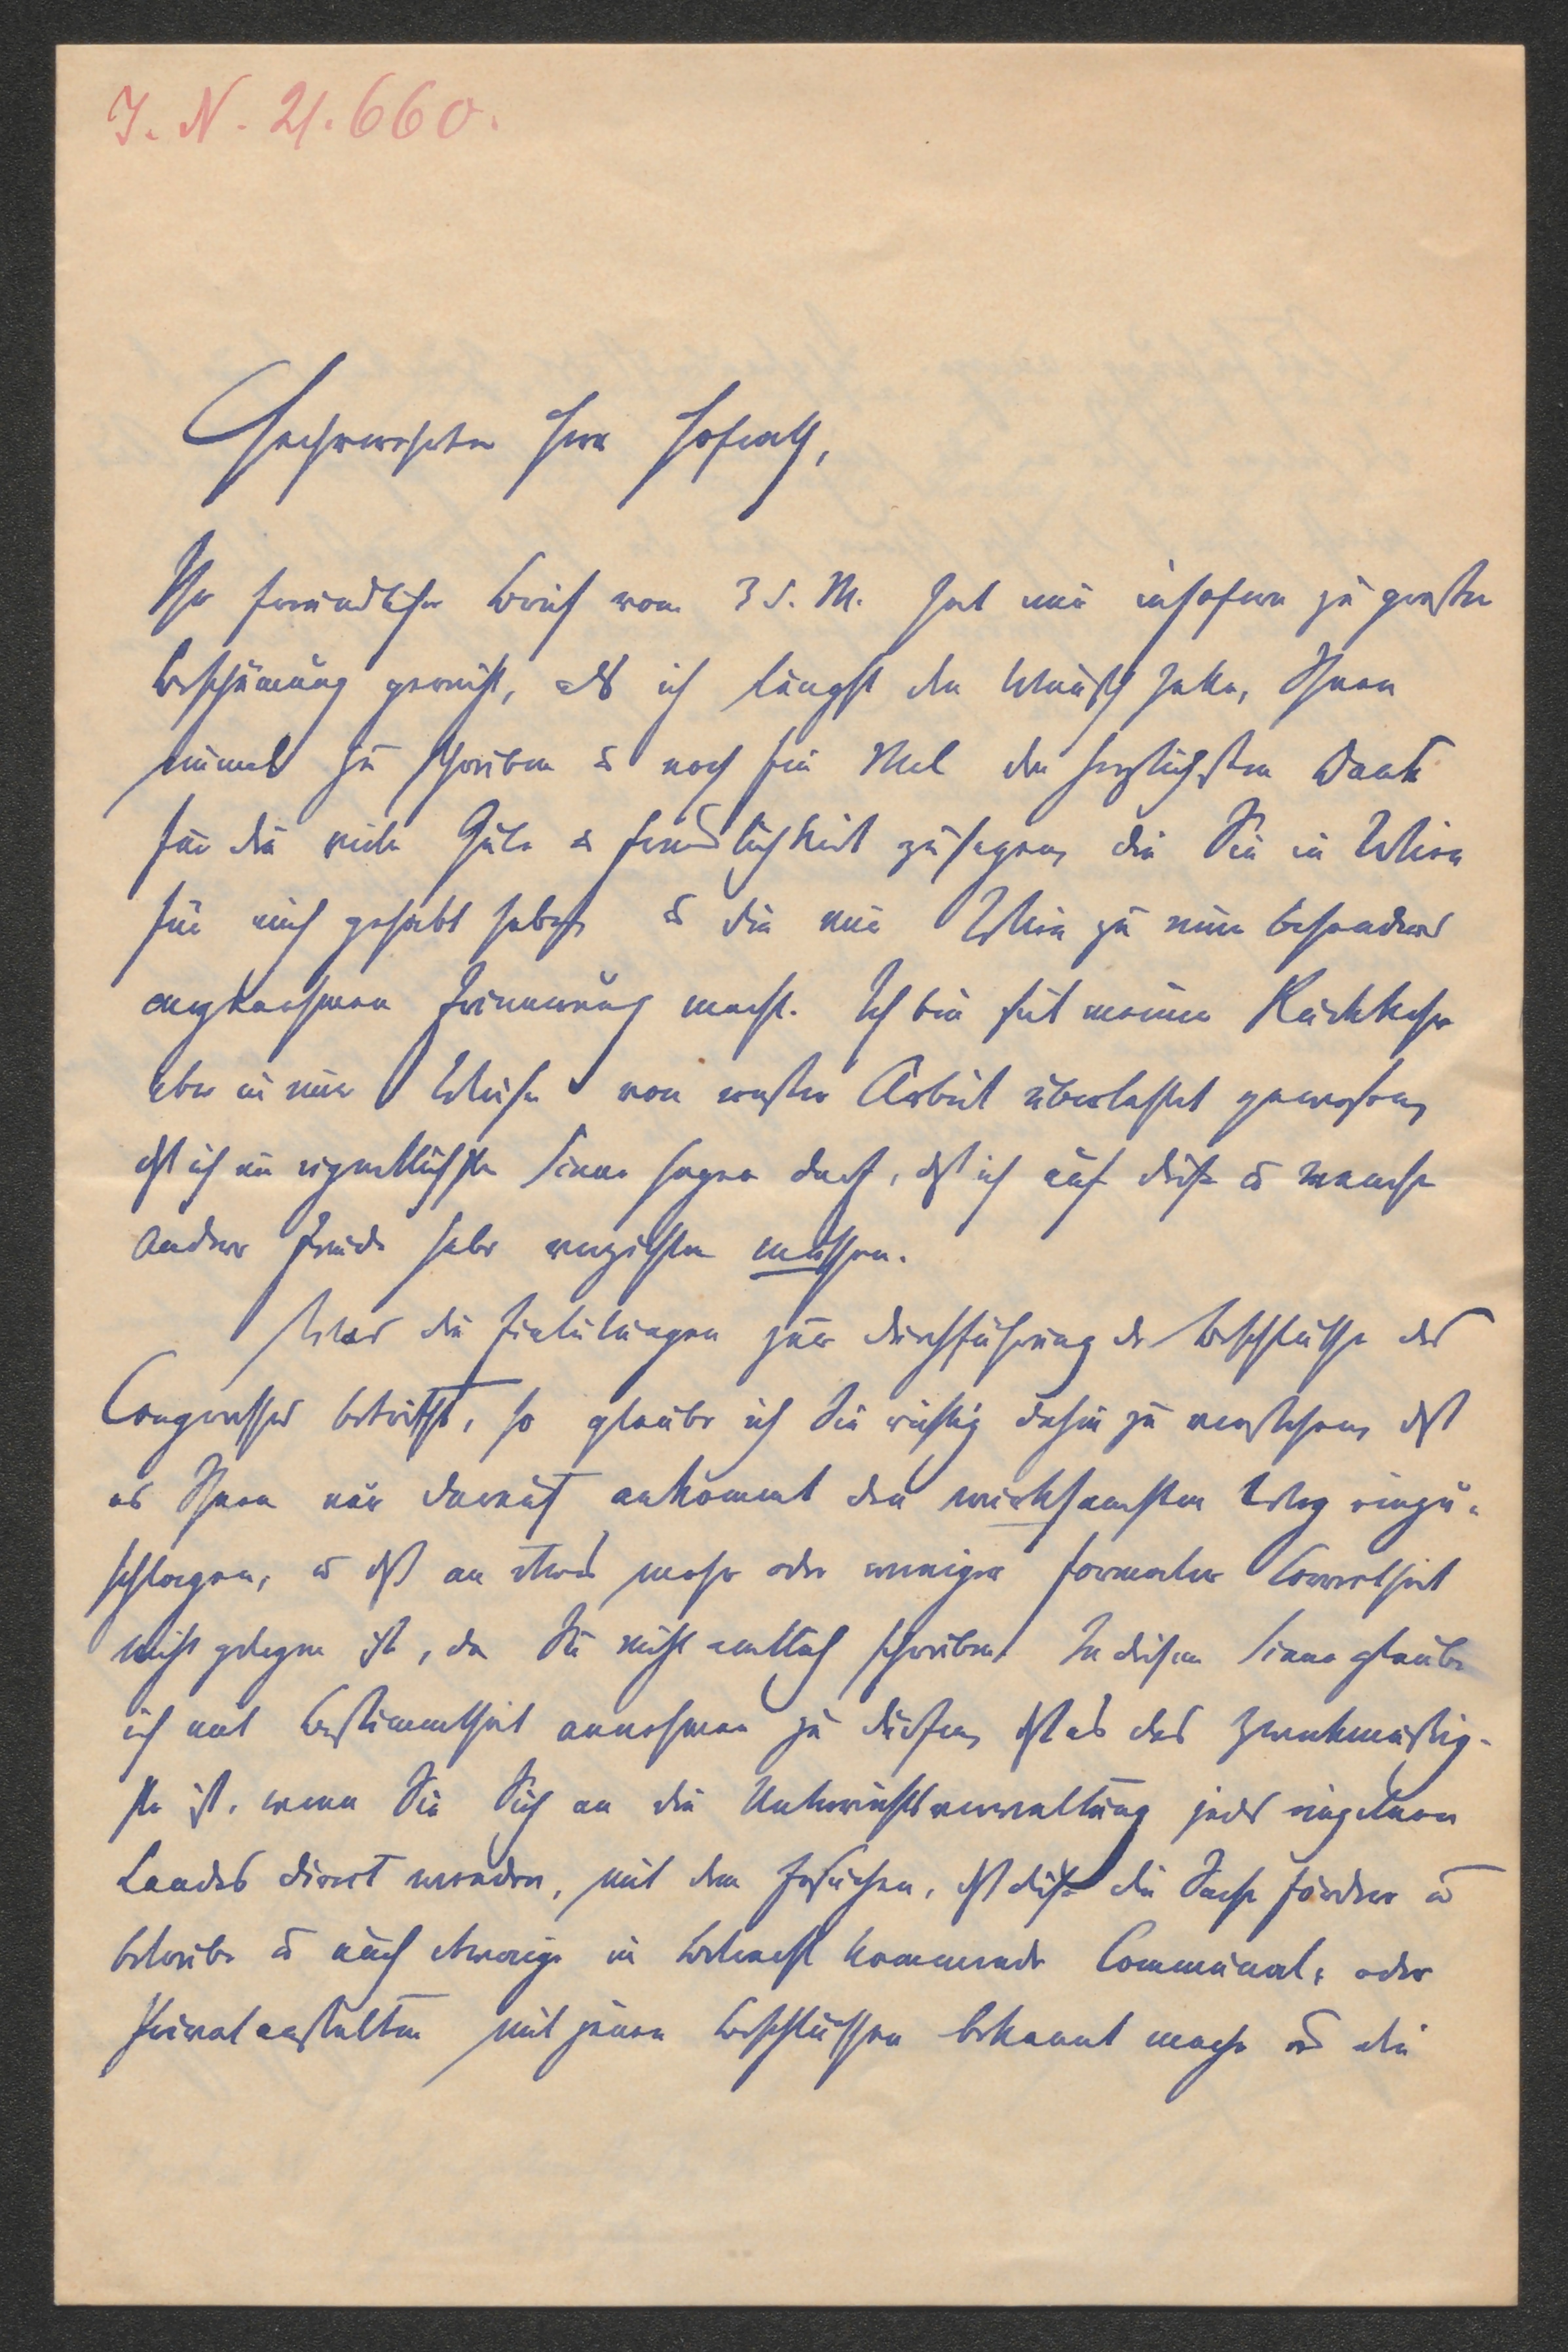 J. N. 21.660.
Hochverehrter Herr Hofrath,
Ihr freundlicher Brief vom 3 d. M. hat mir insofern zu großer
Beschämung gereicht, als ich längst den Wunsch hatte, Ihnen
einmal zu schreiben u noch ein Mal den herzlichsten Dank
für die viele Güte u Freundlichkeit zu sagen, die Sie in Wien
für mich gehabt haben u die mir Wien zu einer besonders
angenehmen Erinnerung macht. Ich bin seit meiner Rückkehr
aber in einer Weise von ernster Arbeit überlastet gewesen,
dß ich im eigentlichsten Sinne sagen darf, dß ich auf diese u manche
andere Freude habe verzichten müssen.
Was die Einleitungen zur Durchführung der Beschlüsse des
Congresses betrifft, so glaube ich Sie richtig dahin zu verstehen, dß
es Ihnen nur darauf ankommt den wirksamsten Weg einzu-
schlagen, u dß an etwas mehr oder weniger formaler Correctheit
nicht gelegen ist, da Sie nicht amtlich schreiben. In diesem Sinne glaube
ich mit Bestimmtheit annehmen zu dürfen, dß es das Zweckmäßig-
ste ist, wenn Sie Sich an die Unterrichtsverwaltung jedes einzelnen
Landes direct wenden, mit dem Ersuchen, dß diese die Sache fördere u
betreibe u auch etwaige in Betracht kommende Communal- oder
Privatanstalten mit jenen Beschlüssen bekannt mache u die